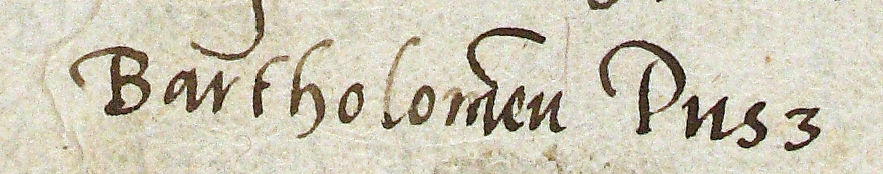 Bartholomeu Pusz